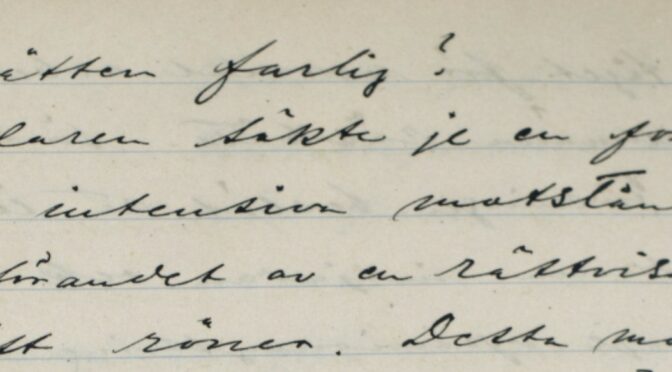 ätten farlig?
laren sökte je en fo
intensiva motstån
förandet av en rättvis
st röner. Detta mo